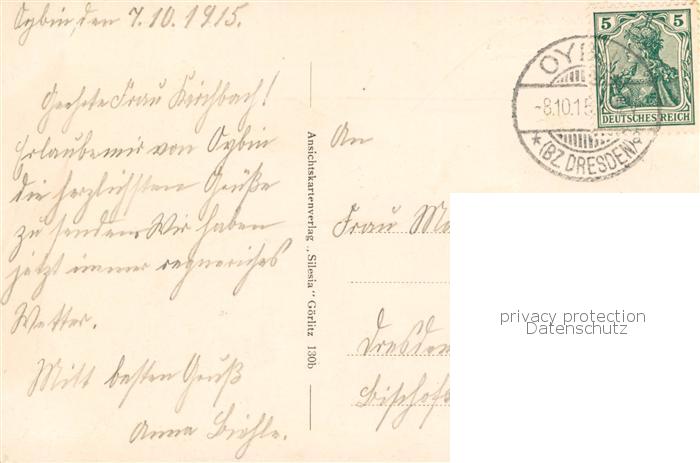 Oybin, den 7.10.1915.
Geehrte Frau Kirchbach!
Erlaube mir von Oybin
die herzlichsten Grüße
zu senden. Wir haben
jetzt immer regnerisches
Wetter.
Mitt besten Gruß
Anna
Ansichtskartenverlag „Silesia" Görlitz 130b
5 5
DEUTSCHES REICH
OYB
-8.10.15
* (BZ. DRESDEN)
An
Frau Ma
Dresden
Bischofs
privacy protection
Datenschutz